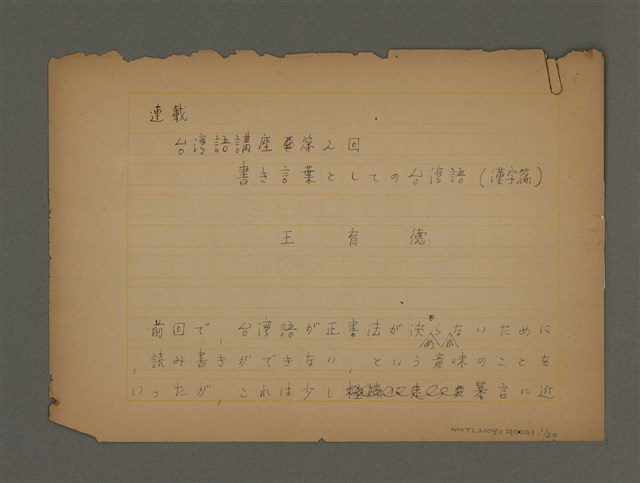 連載
台湾語講座第2回
書き言葉としての台湾語(漢字篇)
王 育 德
前回で、台湾語が正書法が決められないために
、読み書きができない、という意味のことを
いったが、これは少し暴言に近
NMTL20080290001-1/20